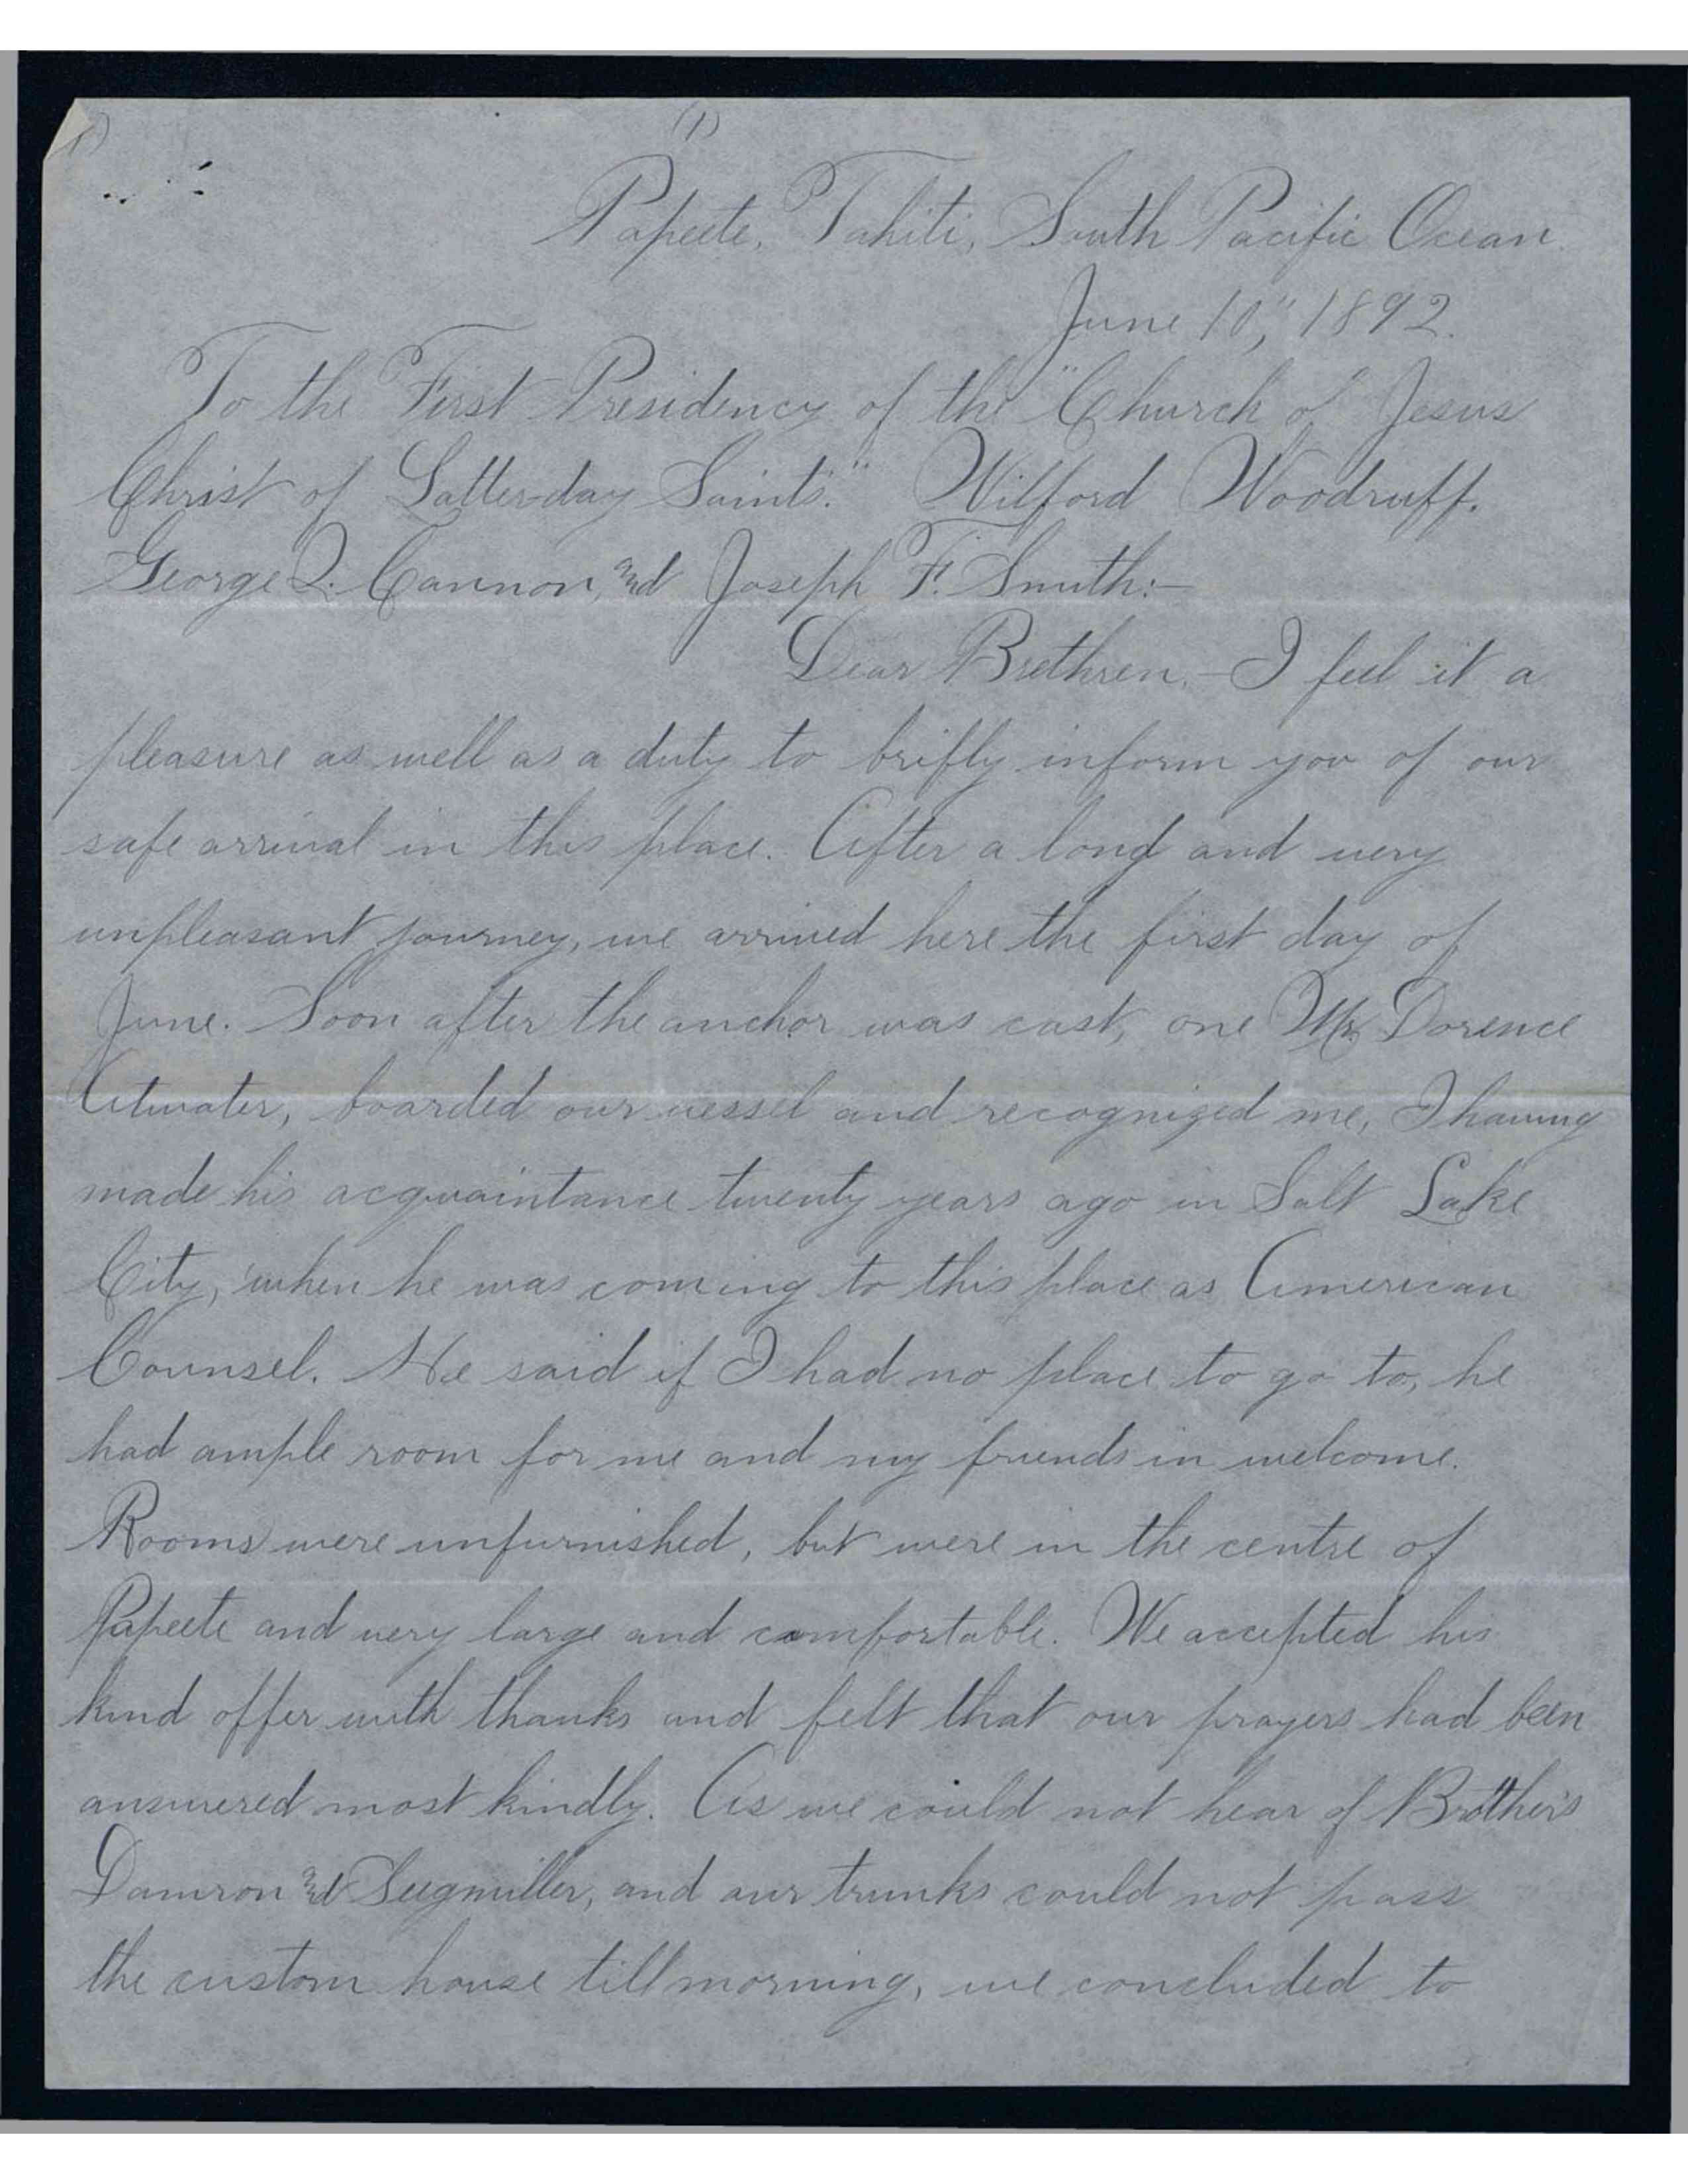 (1)
Papeete, Tahiti, South Pacific Ocean.
June 10", 1892.
To the First Presidency of the "Church of Jesus
Christ of Latter-day Saints." Wilford Woodruff.
George Q. Cannon, and Joseph F. Smith:—
Dear Brethren.—I feel it a
pleasure as well as a duty to brifly inform you of our
safe arrival in this place. After a long and very
unpleasant journey, we arrived here the first day of
June. Soon after the anchor was cast, one Mr. Dorence
Atwater, boarded our vessel and recognized me, I having
made his acquaintance twenty years ago in Salt Lake
City, when he was coming to this place as American
Counsel. He said if I had no place to go to, he
had ample room for me and my friends in welcome.
Rooms were unfurnished, but were in the centre of
Papeete and very large and comfortable. We accepted his
kind offer with thanks and felt that our prayers had been
answered most kindly. As we could not hear of Brothers
Damron and Seegmiller, and our trunks could not pass
the custom house till morning, we concluded to